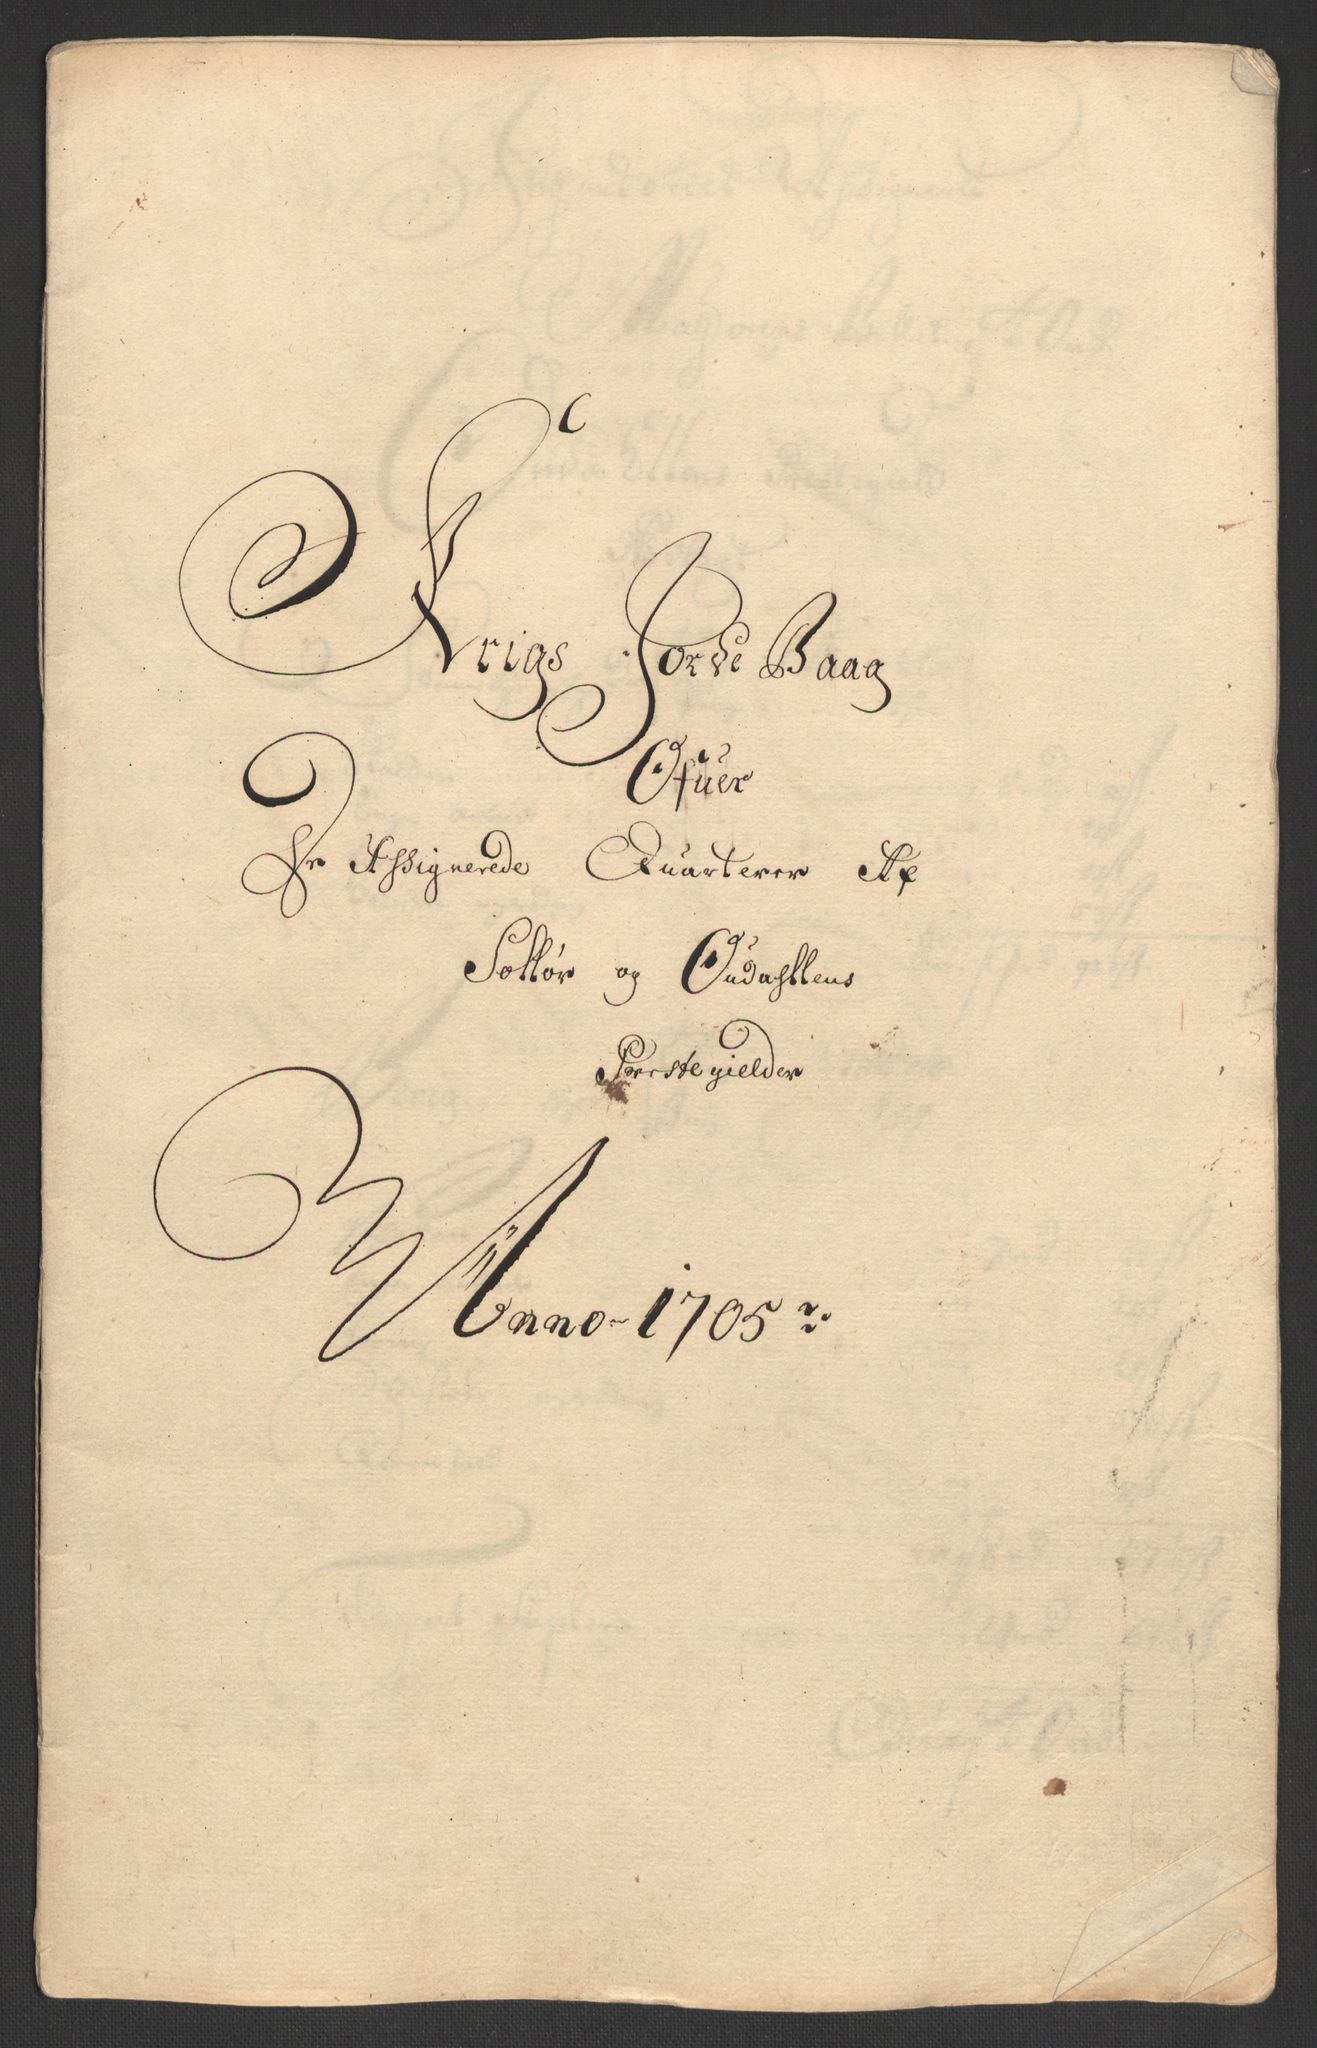 Krigs Jorde Baag
Ofuer
De Assignerede Quarterer Af
Solløer og Oudahllens
Præstegielder
Anno 1705